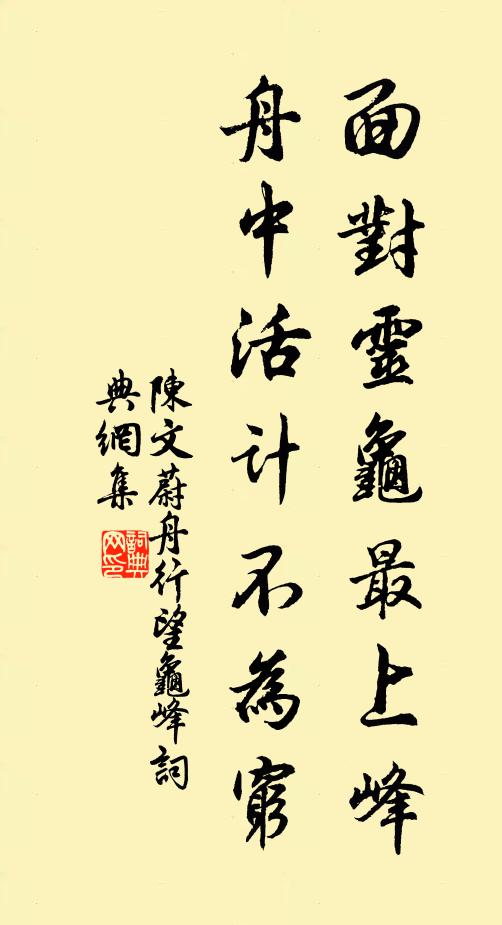 面對靈龜最上峰
舟中活計不為窮
陳文蔚舟行望龜峰詞
典網集
詞典
网印